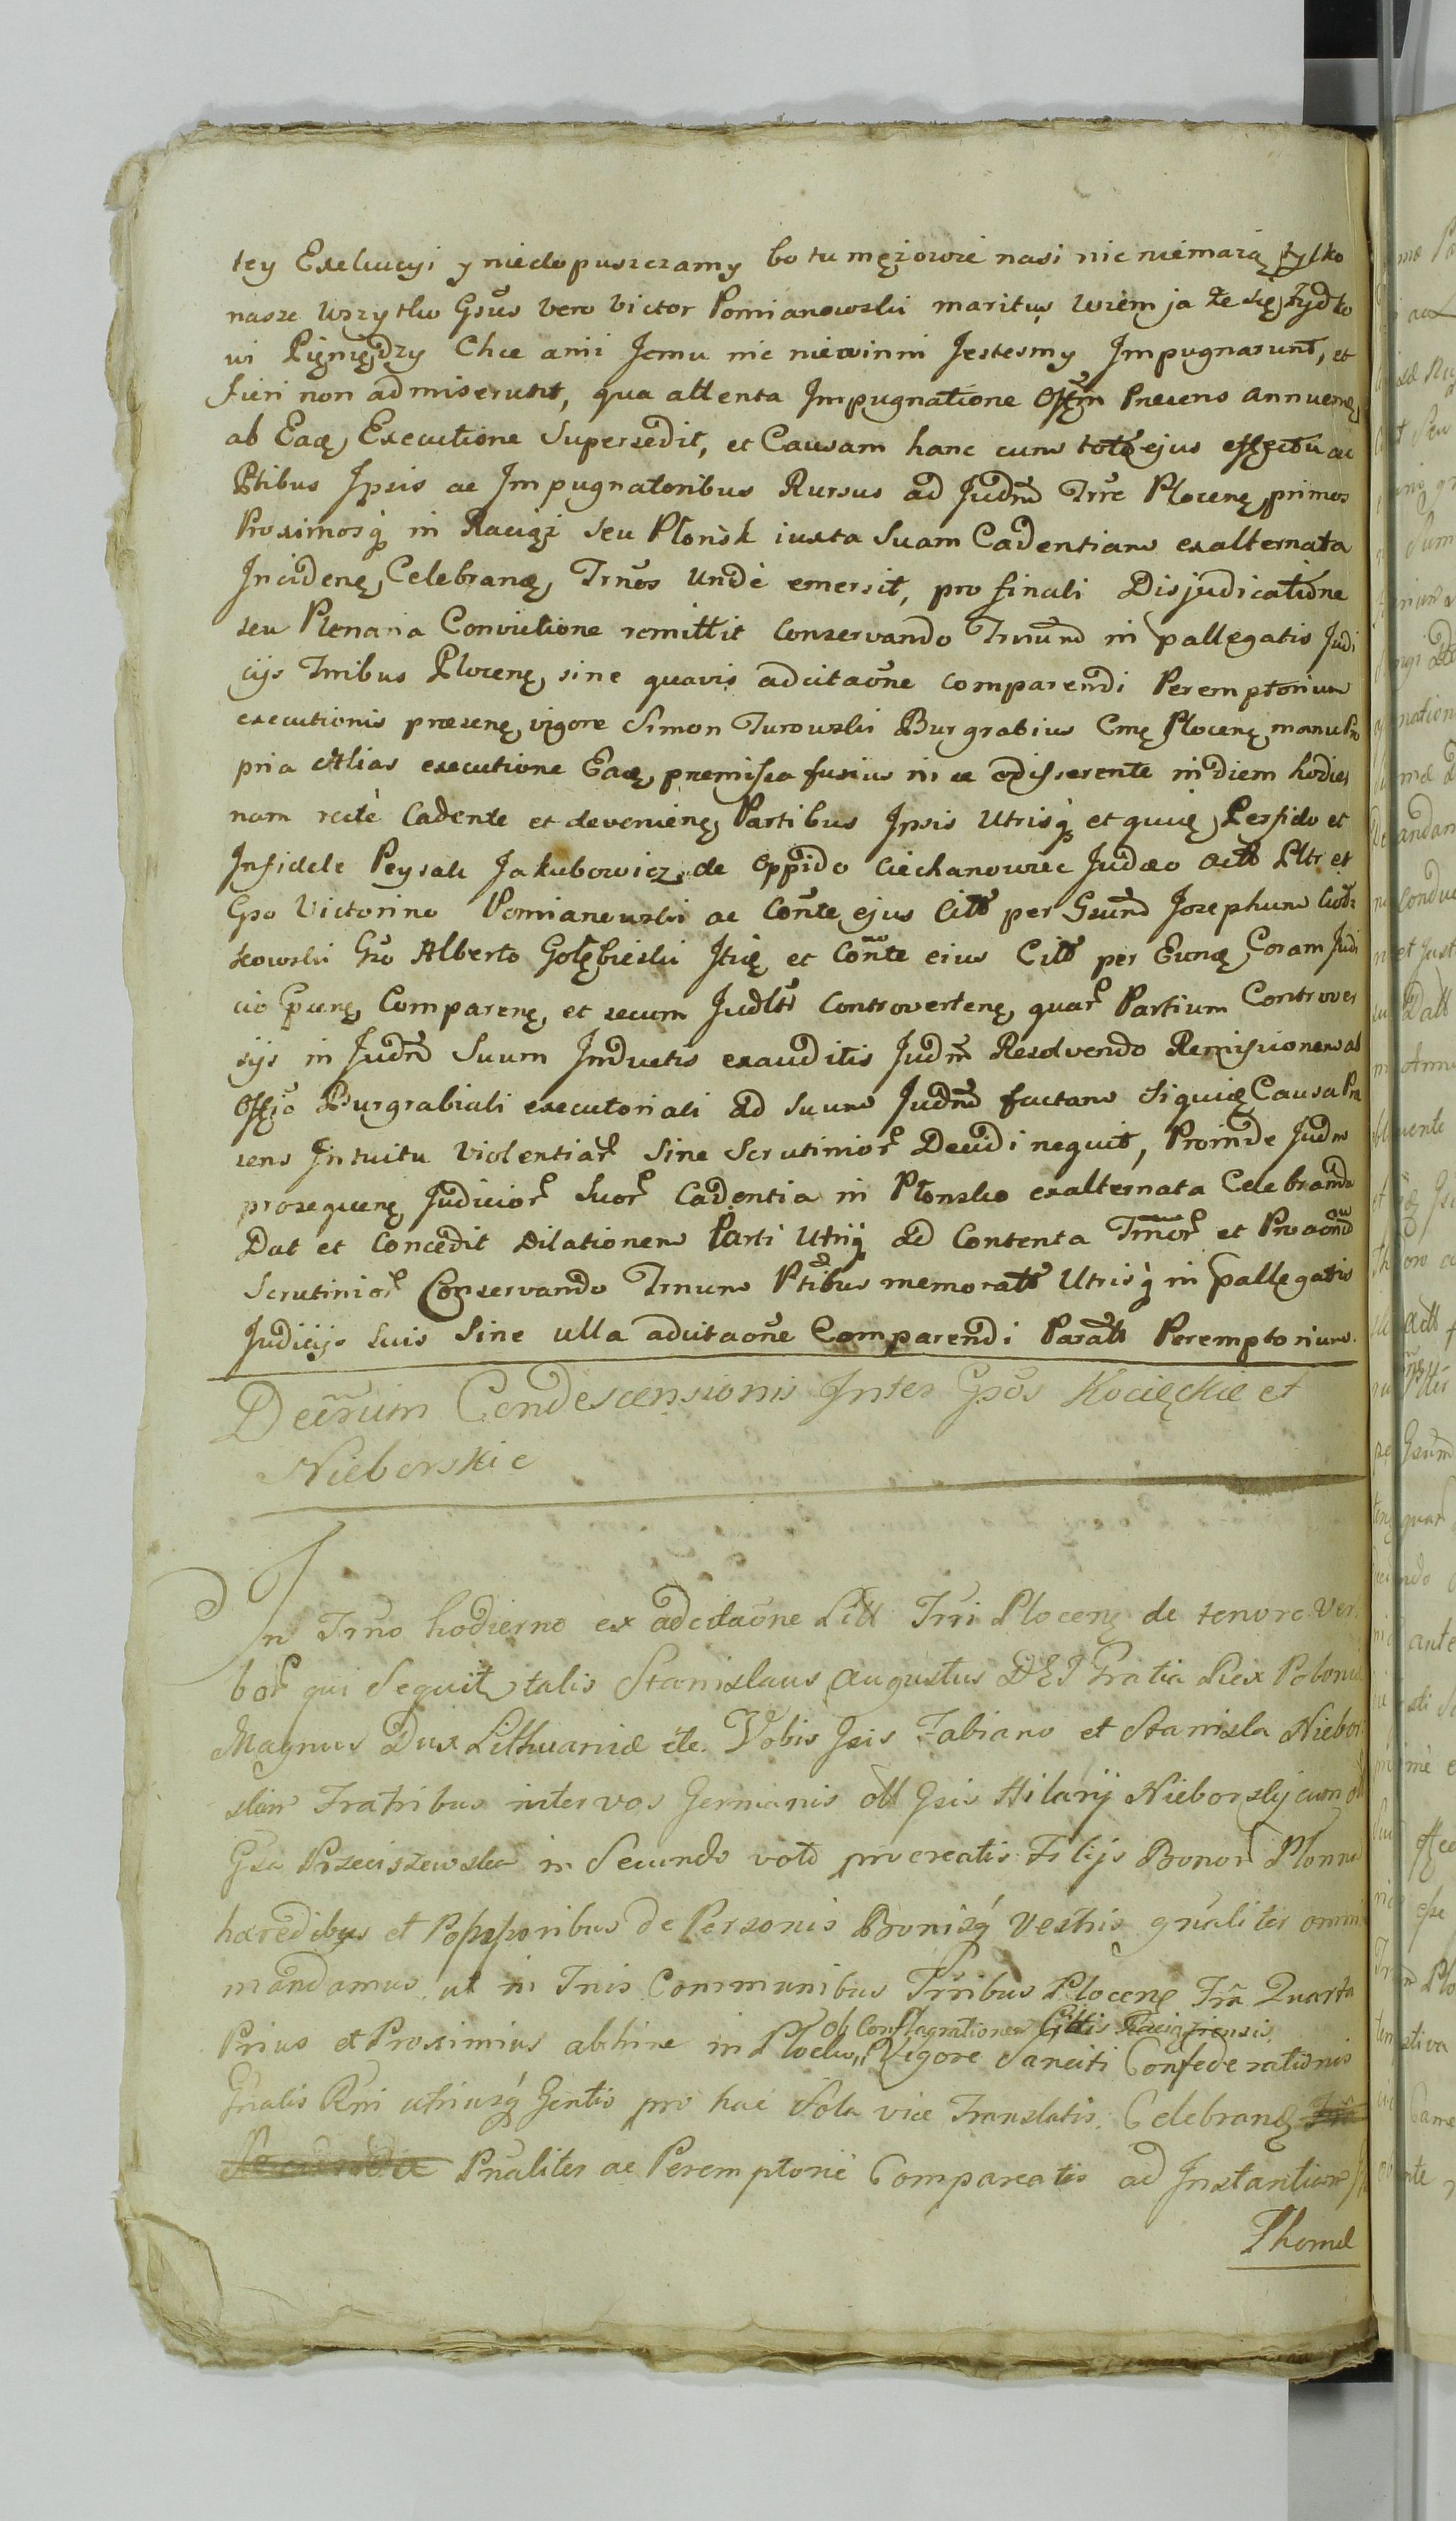 tey Exekucyi y niedopuszczamy bo tu mężowie nasi nic niemaią tylko
nasze wszytko Gsus vero Victor Pomianowski maritus wiem ja że się żydko
wi Pięniędzy Chce anii Jemu nic niewinni Jestesmy Impugnarunt, et
fieri non admiserunt, qua attenta Impugnatione Offm Presens annuenę
ab Eadę Executione Supersedit, et Causam hanc cum toto ejus effectu ac
Ptibus Ipsis ac Impugnatoribus Rursus ad Judm Trre Plocenę primos
Proximosq in Raciąż seu Płońsk iuxta Suam Cadentiam exalternata
Incidenę Celebranę Trnos unde emersit, pro finali Disjudicatione
seu Plenaria Convictione remittit Conservando Trnum in pallegatis Judi
cijs Trribus Plocenę sine quavis adcitaone comparendi Peremptorium
executionis præsenę vigore Simon Turowski Burgrabius Cnę Plocenę manu Pro
pria Alias executione Eadę premissa fusius in se edisserente in diem hodier
nam recte Cadente et devenienę Partibus Ipsis Utrisq et quię Perfido et
Infidele Peysak Jakubowicz de Oppido Ciechanowiec Judæo Actt Pltr et
Gso Victorino Pomianowski ac Conte ejus Citt per Gsum Josephum
kowski Gso Alberto Gołębieski Itię et Conte eius Citt per Eundę Coram Judi
cio Pnę Comparenę et secum Judltr Controvertenę quar Partium Controver
sijs in Judm Suum Inductis exauditis Judm Resolvendo Remissionem ab
Offio Burgrabiali executoriali ad Suum Judm factam Siquidę Causa Præ
sens Intuitu Violentiar Sine Scrutinior Decidi nequit, Proinde Judm
prosequenę Judicior Suor Cadentia in Płonsko exalternata Celebranda
Dat et Concedit Dilationem Parti Utriq ad Contenta Trnor et Proaond
Scrutinior Conservando Trnum Ptibus memoratt Utrisq in pallegatis
Judicijs suis Sine ulla adcitaone Comparendi Paratt Peremptorium.
Decrum Condescensionis Inter Gsos Kocięckie et
Nieborskie
In Trno hodierno ex adcitaone Litt Trri Plocenę de tenore Ver
bor qui Sequitr talis Stanislaus Augustus DEI Gratia Rex Poloniæ
Magnus Dux Lithuaniæ etc. Vobis Gsis Fabiano et Stanisla Niebor
skim Fratribus inter vos Germanis olt Gsis Hilarij Nieborskij cum olt
Gsa Przeciszewska in Secundo voto procreatis Filijs Bonor Płonna
hæredibus et Possessoribus de Personis Bonisq Vestris gnaliter omni
mandamus ut in Tnis Communibus Trribus Plocenę Fra Quarta
Prius et Proximius abhinc in Plocko ob Conflagrationem Cittis Raciążiensis Vigore Sanciti Confederationis
Gnalis Rni utriusq Gentis pro hac Sola vice Translatis Celebranę
Pnaliter ac Peremptorie Compareatis ad Instantiam
Thomæ